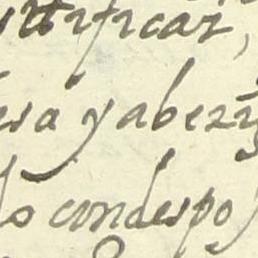 stificar,
esa y aberi
lo condespo